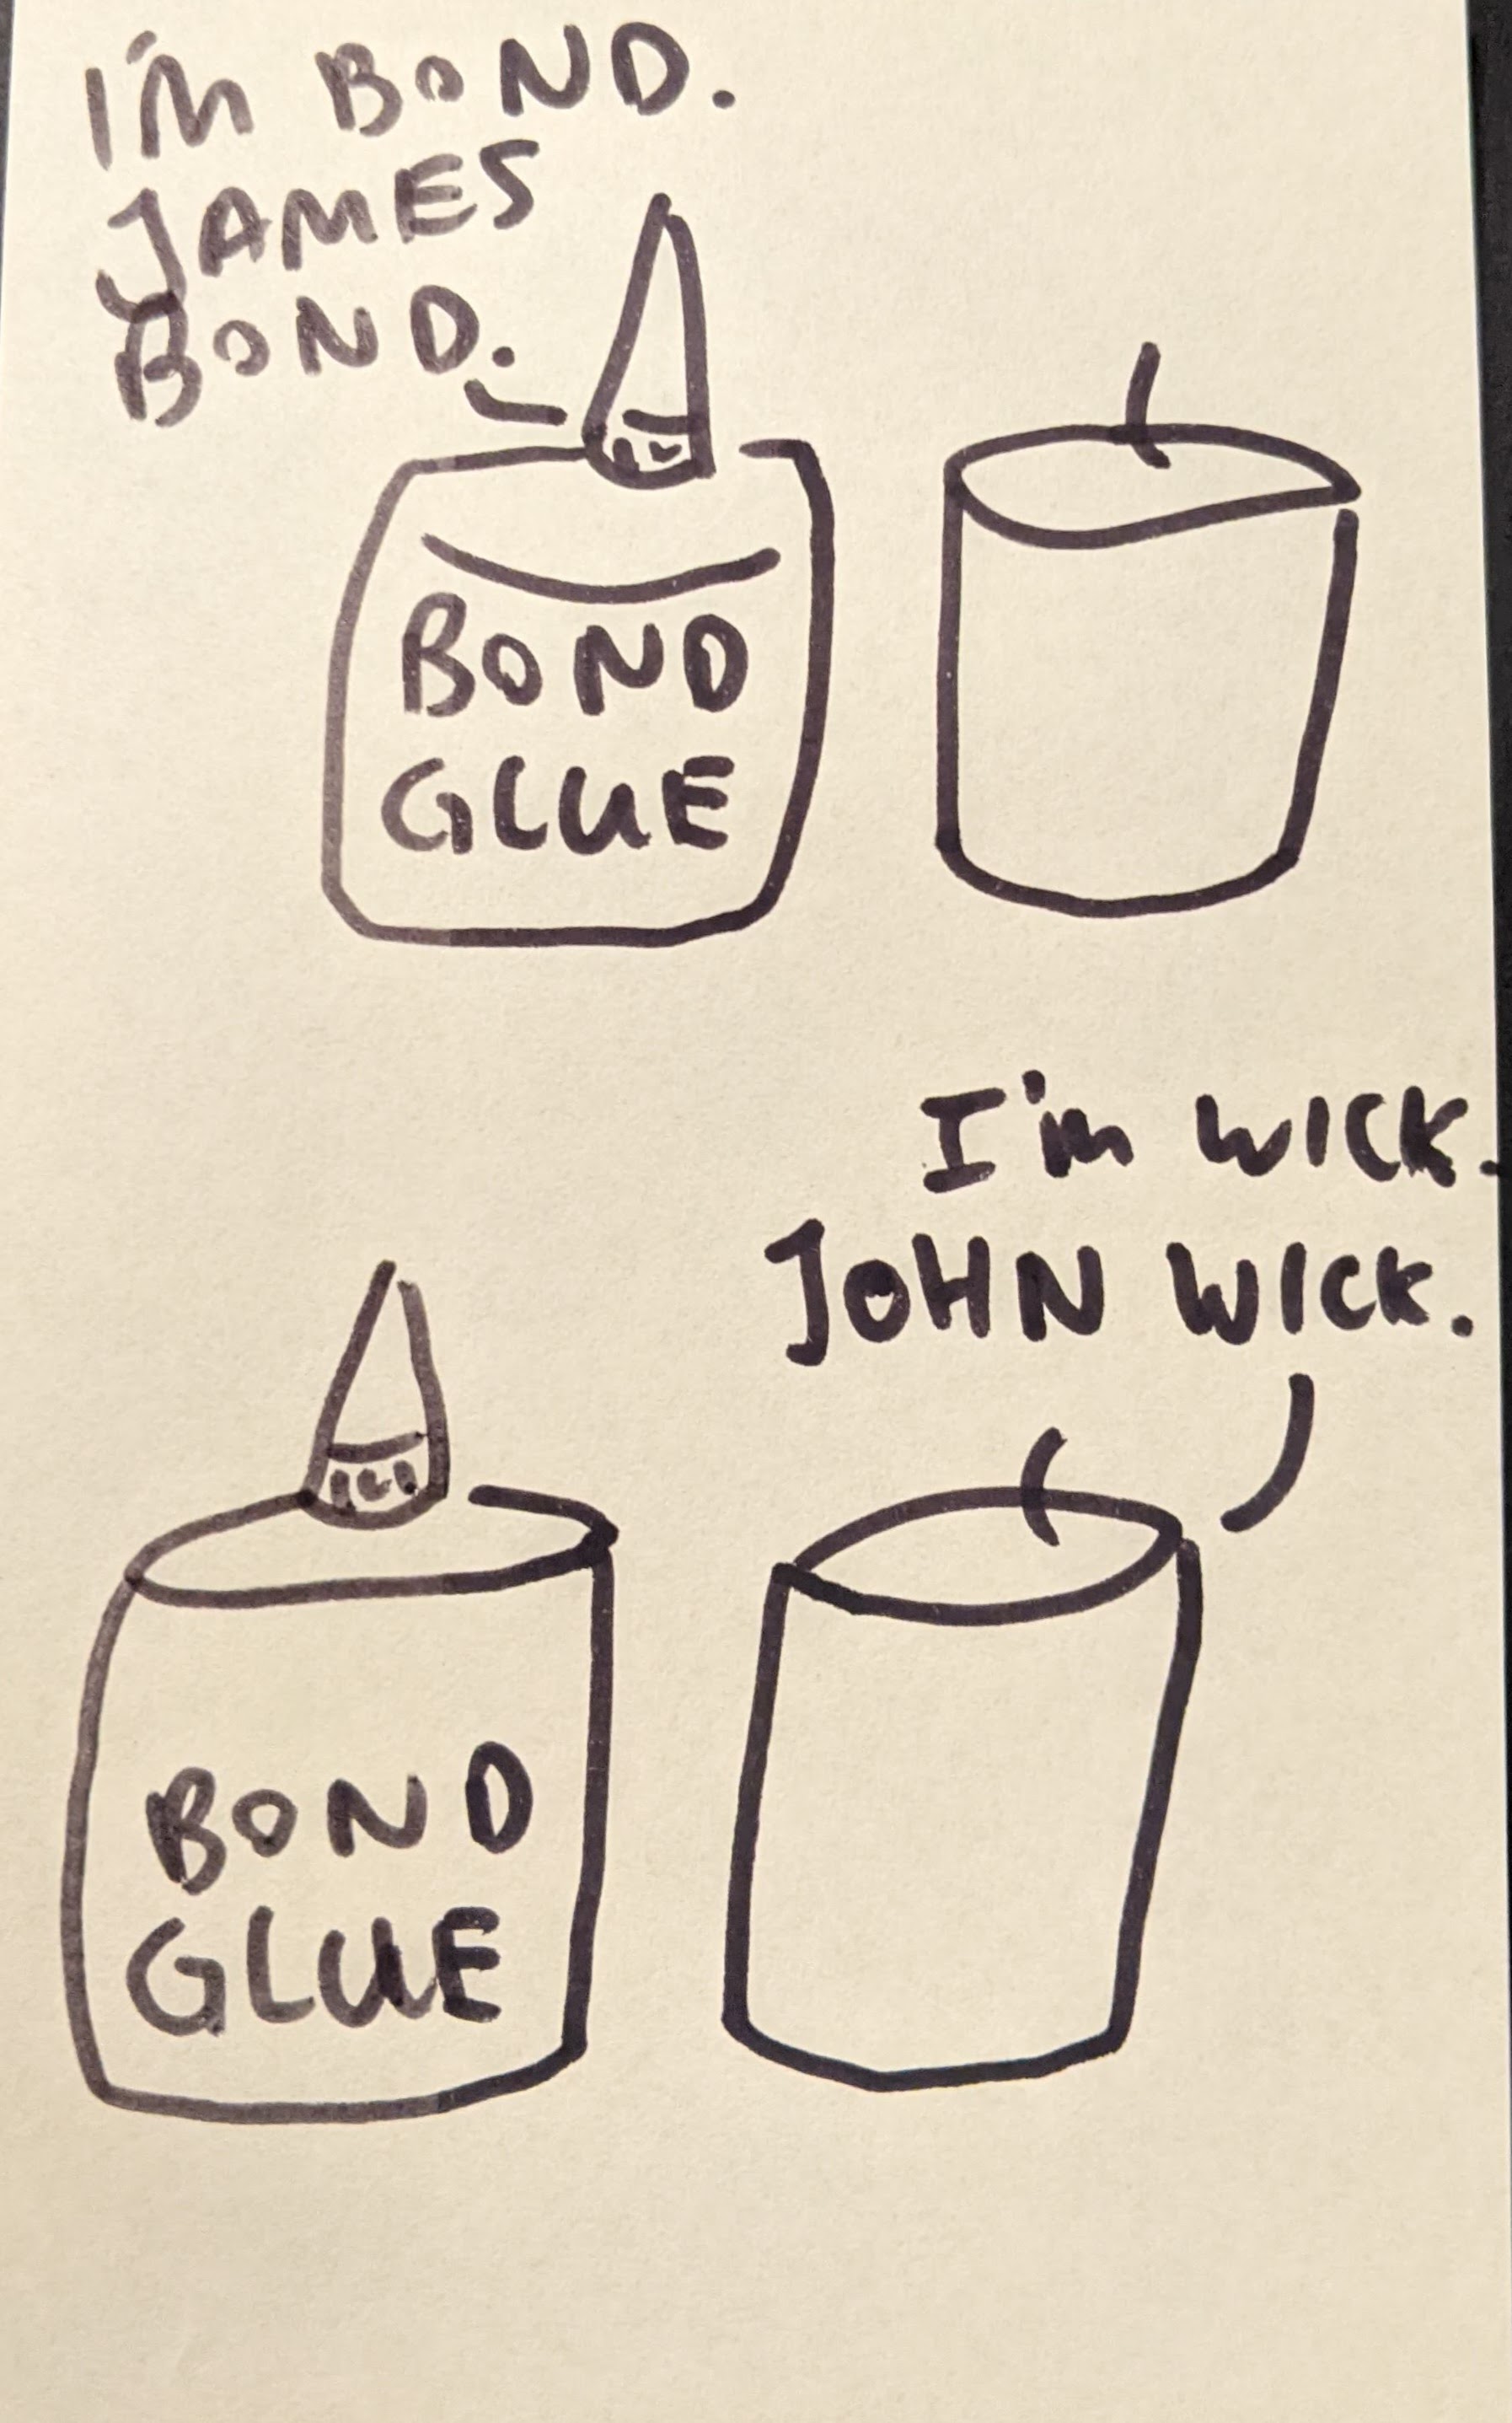 I'M BOND.
JAMES
BOND.
BOND
GLUE
I'm WICK.
JOHN WICK.
BOND
GLUE